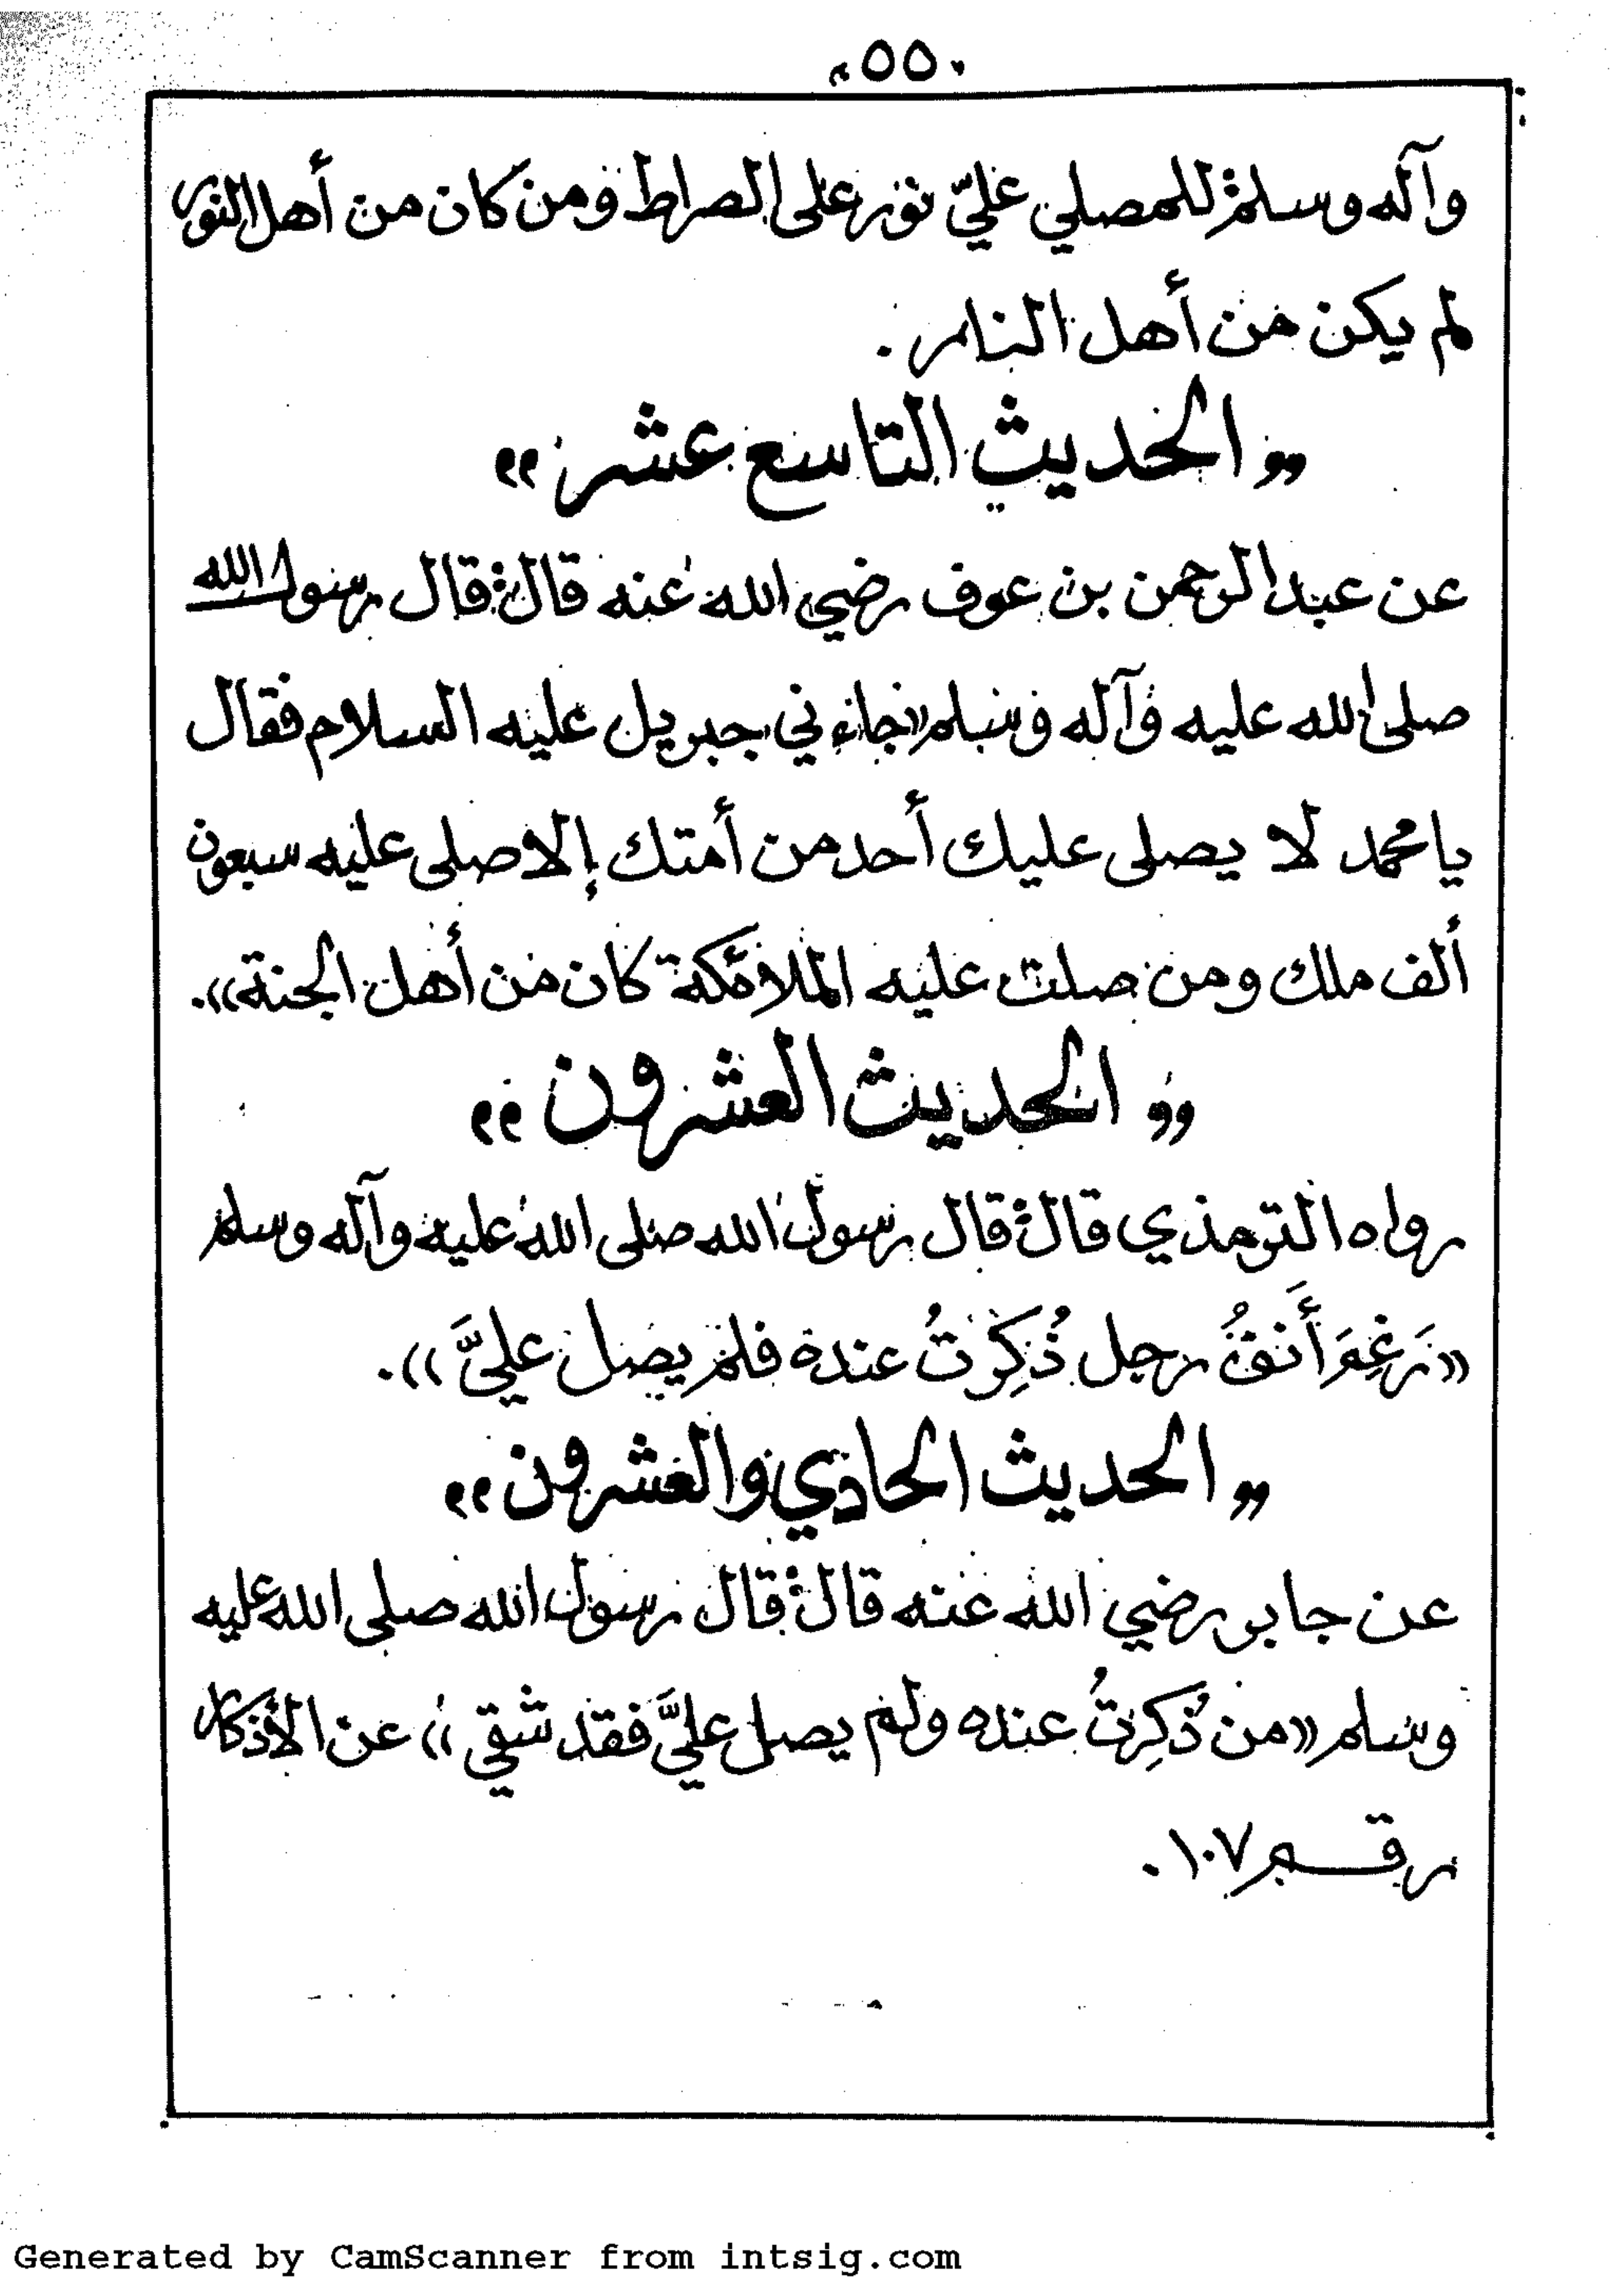 ٥٥
وآله وسلم: للمصلي عليّ نور على الصراط ومن كان من أهل النور
لم يكن من أهل النار.
«الحديث التاسع عشر»
عن عبد الرحمن بن عوف رضي الله عنه قال: قال رسول الله
صلى الله عليه وآله وسلم «جاءني جبريل عليه السلام فقال
يا محمد لا يصلى عليك أحد من أمتك إلا صلى عليه سبعون
ألف ملك ومن صلت عليه الملائكة كان من أهل الجنة».
«الحديث العشرون»
رواه الترمذي قال: قال رسول الله صلى الله عليه وآله وسلم
«رَغِمَ أَنفُ رجل ذُكِرْتُ عنده فلم يصل عليَّ».
«الحديث الحادي والعشرون»
عن جابر رضي الله عنه قال: قال رسول الله صلى الله عليه
وسلم «من ذُكِرْتُ عنده ولم يصل عليَّ فقد شقي» عن الأذكار
رقم ١٠٧.
Generated by CamScanner from intsig.com